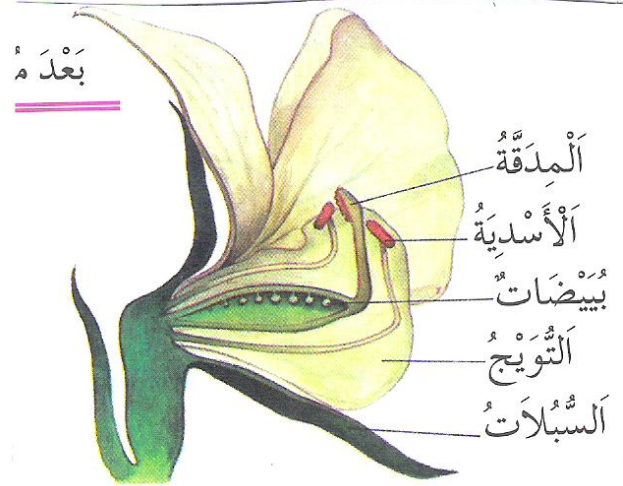 بَعْدَ
اَلْمِدَقَّةُ
اَلْأَسْدِيَةُ
بُيَيْضَاتٌ
اَلتُّوَيْجُ
اَلسُّبُلاَتُ